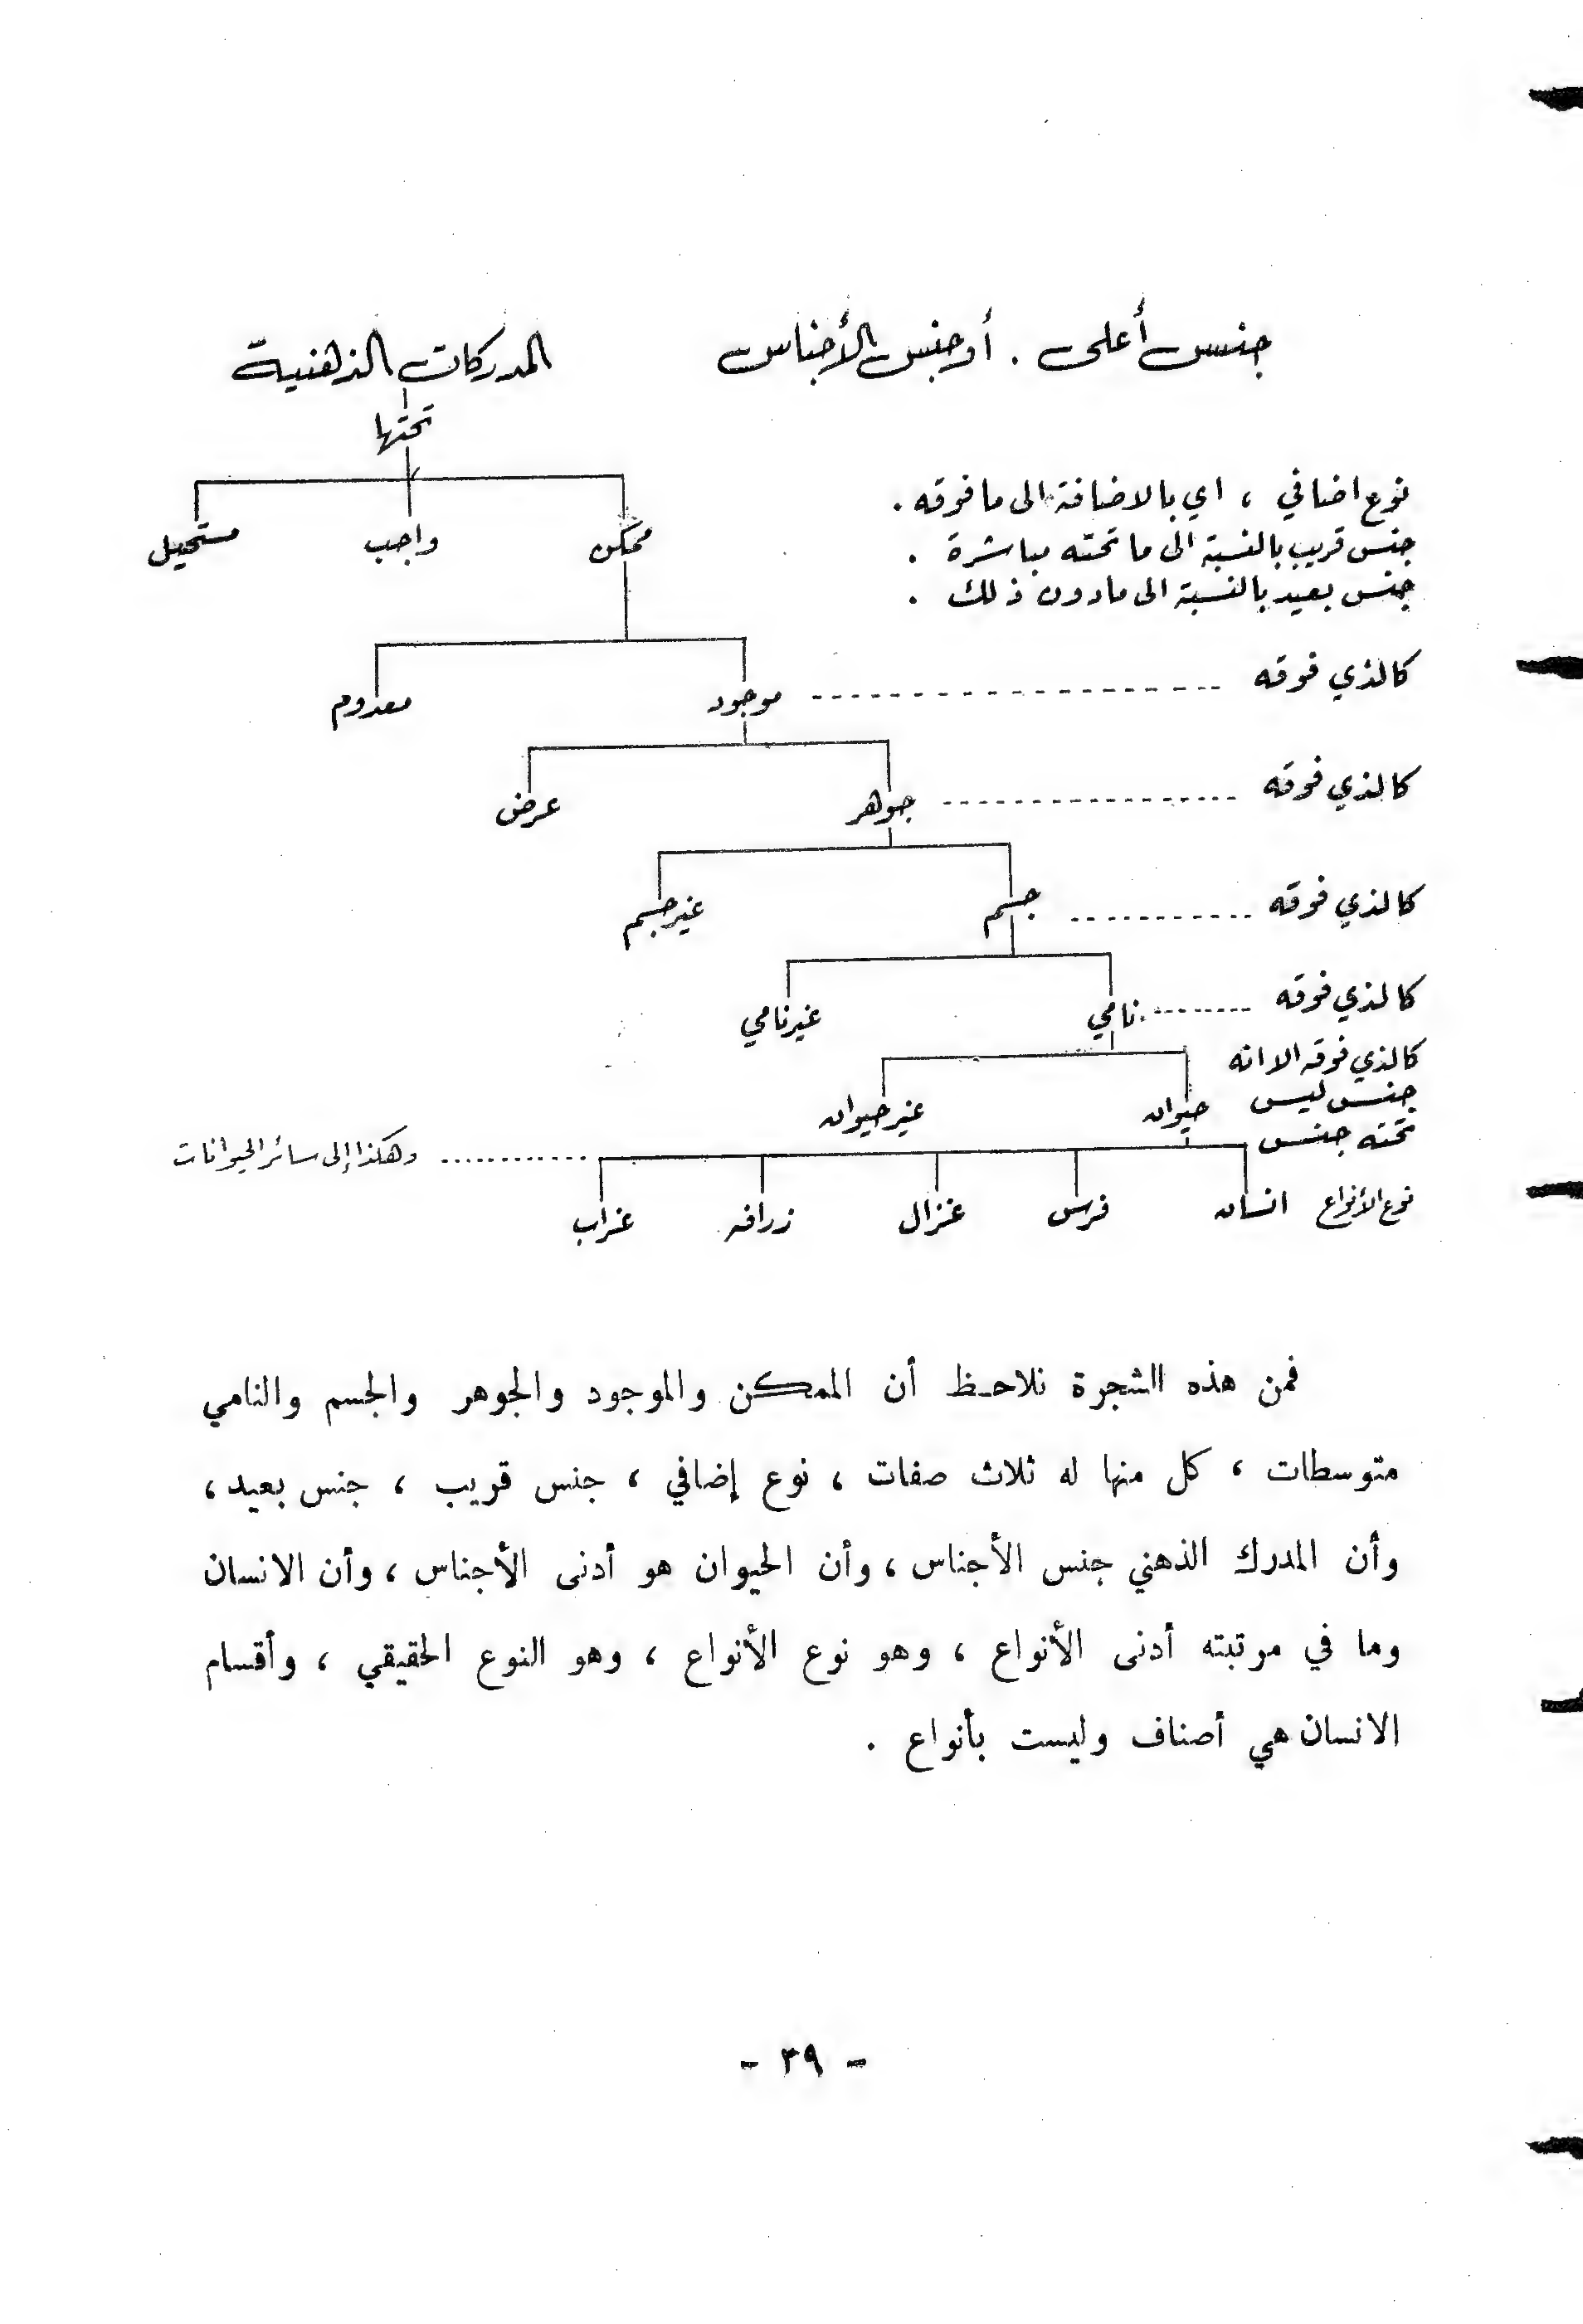 جنس أعلى . أو جنس الأجناس
المدركات الذهنية
تحتها
نوع اضافي ، اي بالاضافة الى ما فوقه .
ممكن
واجب
مستحيل
جنس قريب بالنسبة الى ما تحته مباشرة .
جنس بعيد بالنسبة الى مادون ذلك .
كالذي فوقه
موجود
معدوم
كالذي فوقه
جوهر
عرض
كالذي فوقه
جسم
غير جسم
كالذي فوقه
نامي
غير نامي
كالذي فوقه الا انه
جنس ليس
تحته جنس
حيوان
غير حيوان
وهكذا إلى سائر الحيوانات
نوع الأنواع
انسان
فرس
غزال
زرافه
غراب
فمن هذه الشجرة نلاحظ أن الممكن والموجود والجوهر والجسم والنامي
متوسطات ، كل منها له ثلاث صفات ، نوع إضافي ، جنس قريب ، جنس بعيد ،
وأن المدرك الذهني جنس الأجناس ، وأن الحيوان هو أدنى الأجناس ، وأن الانسان
وما في مرتبته أدنى الأنواع ، وهو نوع الأنواع ، وهو النوع الحقيقي ، وأقسام
الانسان هي أصناف وليست بأنواع .
- ٣٩ -